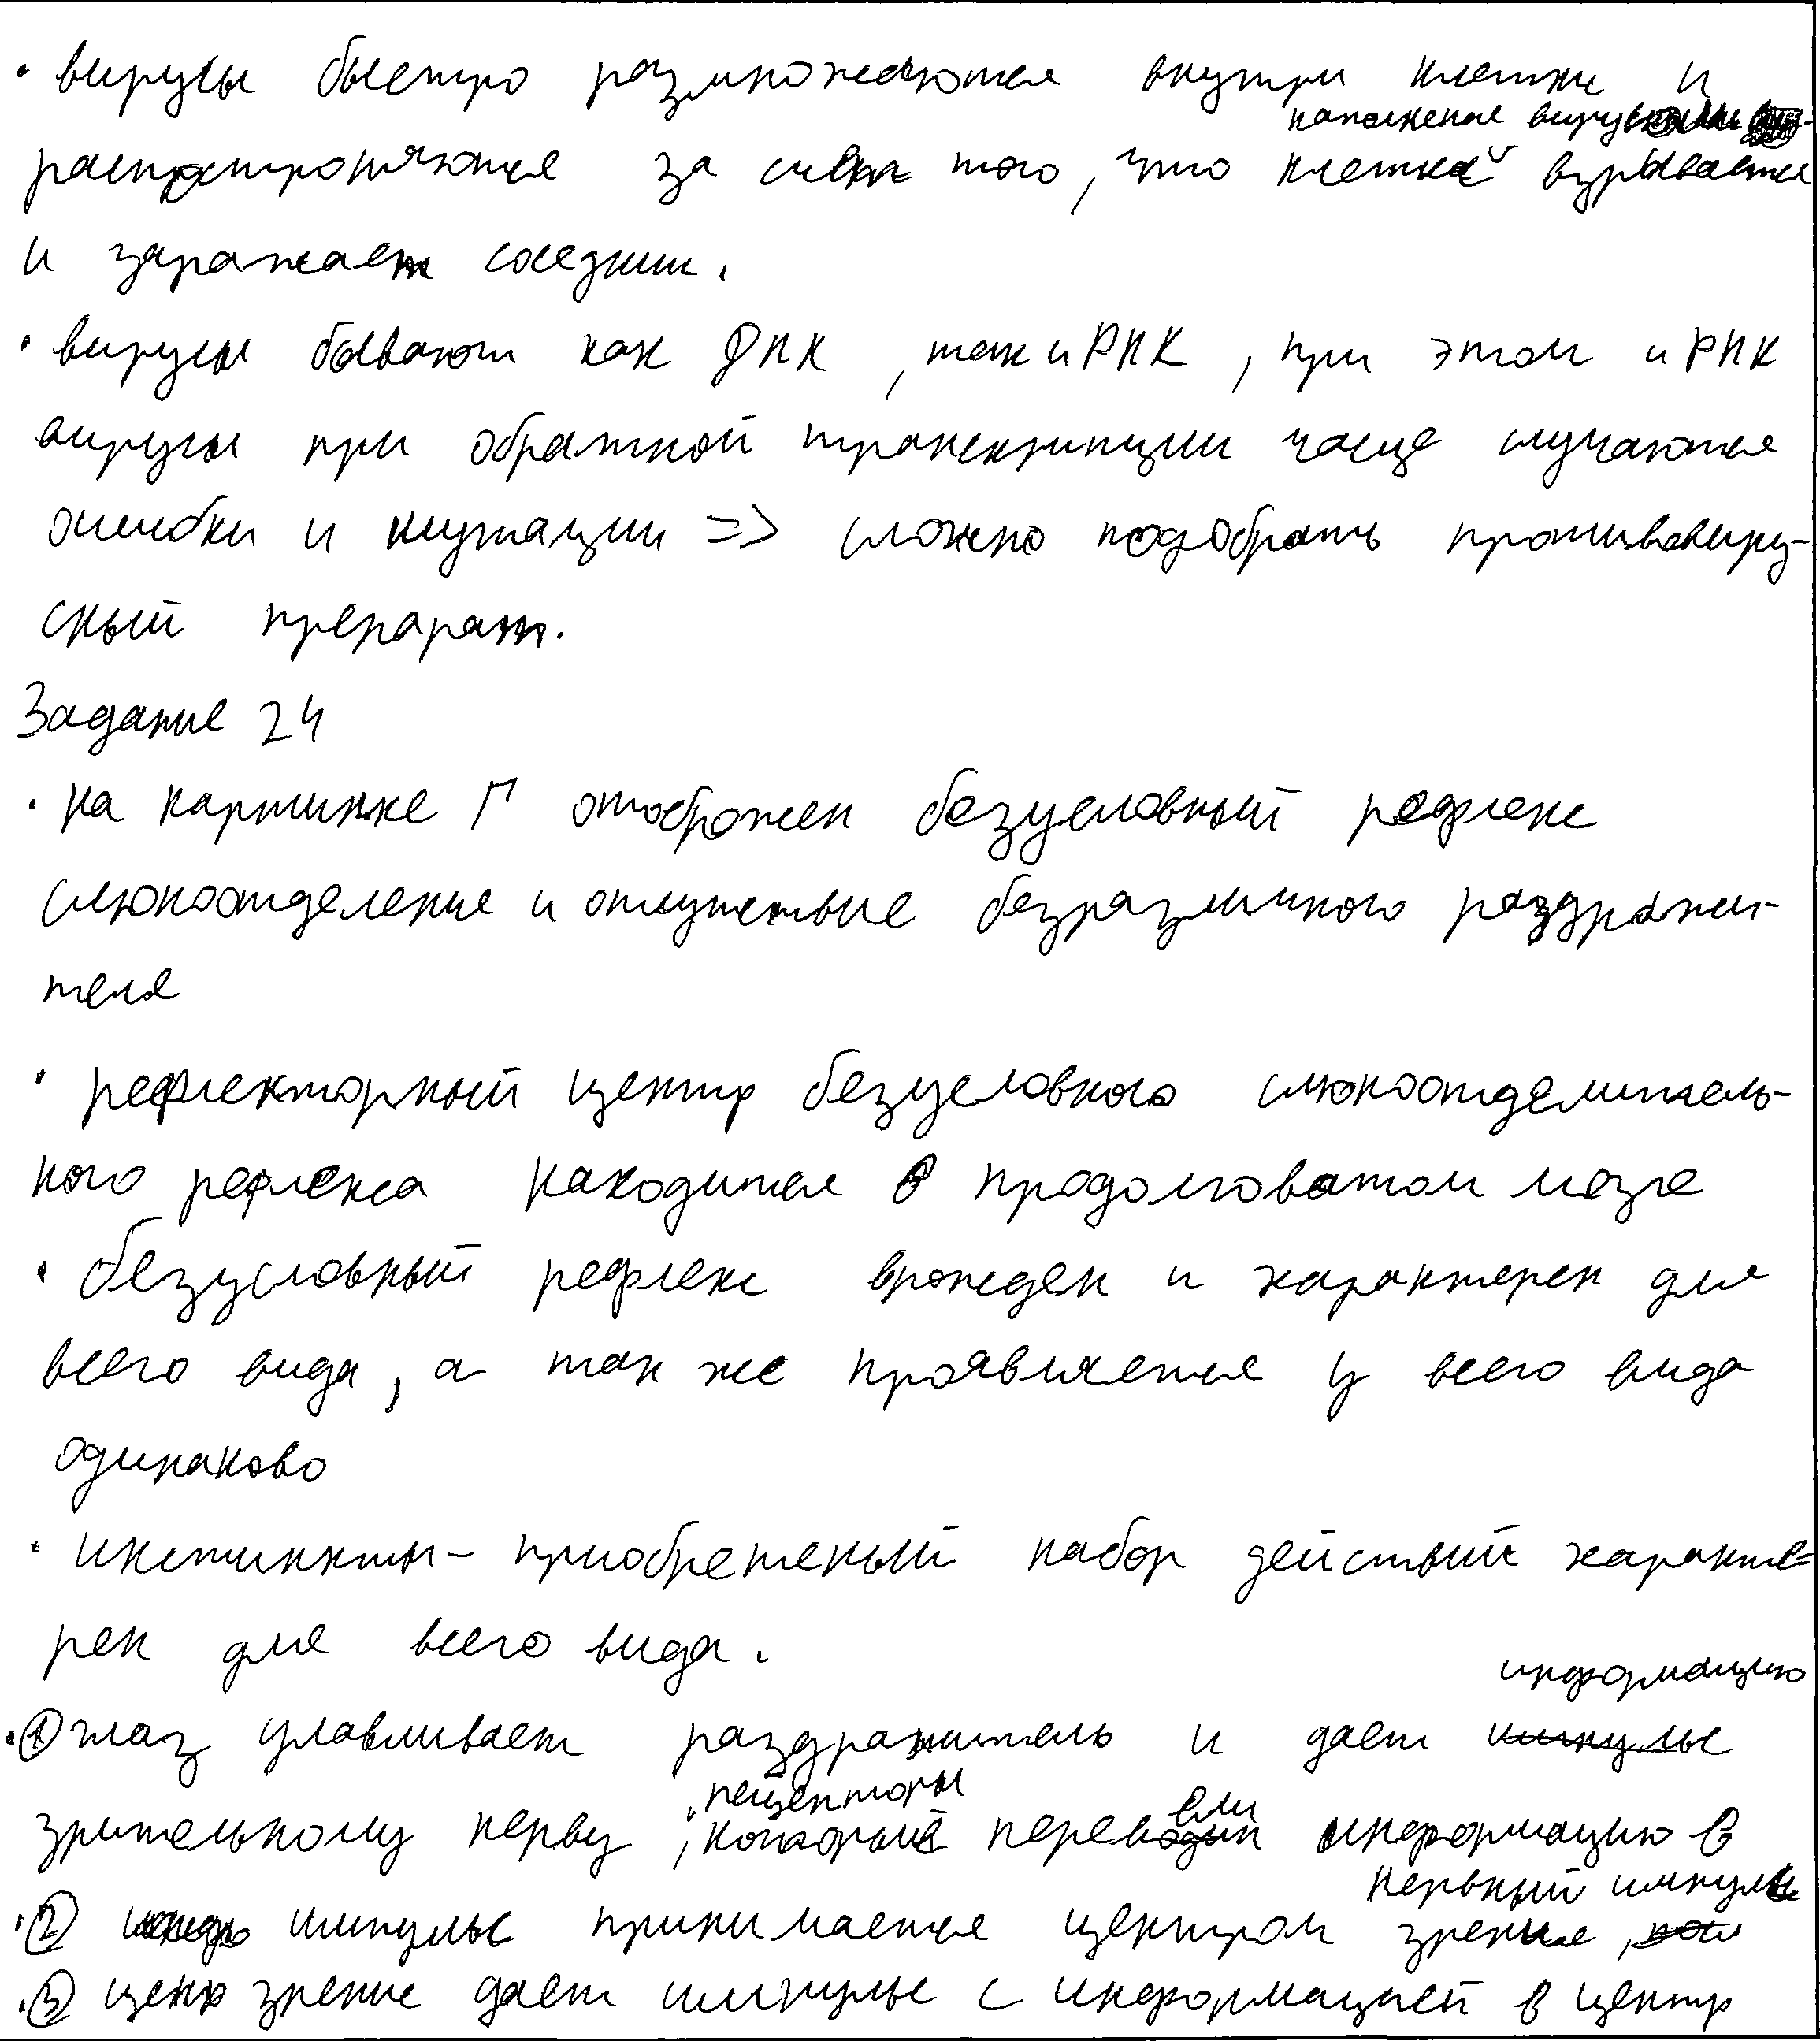 · вирусы быстро размножаются внутри клетки и
наполненая вирусами
распространяются за счёт того, что клетка взрывается
и заражает соседнии.
· вирусы бывают как ДНК, так и РНК, при этом и РНК
вирусы при обратной транскрипции чаще случаются
ошибки и мутации => сложно подобрать противовиру-
сный препарат.
Задание 24
· на картинке Г отображен безусловный рефлекс
слюноотделение и отсутствие безразличного раздражи-
теля
· рефлекторный центр безусловного слюноотделитель-
ного рефлекса находится в продолговатом мозге
· безусловный рефлекс врожден и характерен для
всего вида, а так же проявляется у всего вида
одинаково
· инстинкты - приобретеный набор действий характе-
рен для всего вида.
информацию
· ① глаз улавливает раздражитель и дает импульс
, рецепторы ели
зрительному нерву, который переводит информацию в
нервный импульс
· ② импульс принимается центром зрение,
· ③ центр зрение дает импульс с информацией в центр